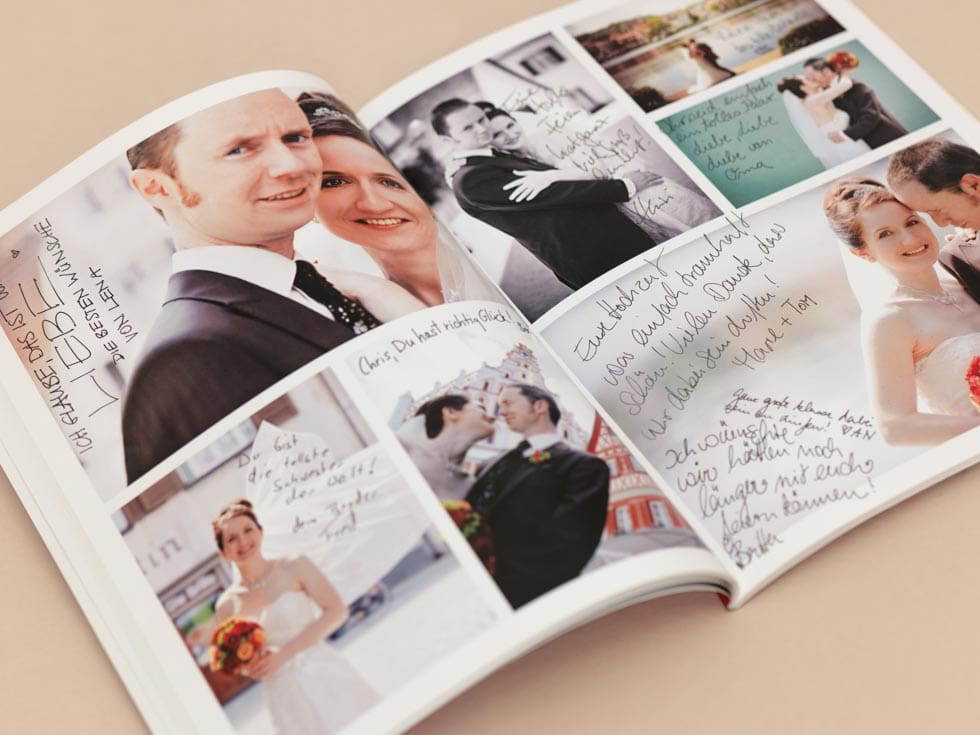 ICH GLAUBE, DAS IST
LIEBE
DIE BESTEN WÜNSCHE
VON LENA
Du bist
die tollste
Schwester
der Welt!
dein Bruder
Chris, Du hast richtig Glück!
Eine
tolle
Feier
Ihr seid einfach
ein tolles Paar
Liebe, liebe
Liebe von
Oma
Eure Hochzeit
war einfach traumhaft
schön! Vielen Dank, dass
wir dabei sein durften!
Marie + Tom
Ganz große klasse dabei
sein zu dürfen!
Ich wünschte
wir hätten noch
länger mit euch
feiern können!